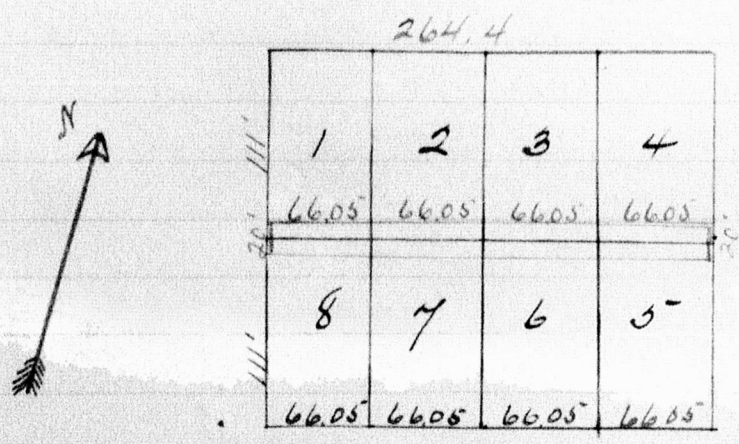 264.4
N
111' 1 2 3 4
66.05 66.05 66.05 66.05
20' 20'
111' 8 7 6 5
66.05 66.05 66.05 66.05